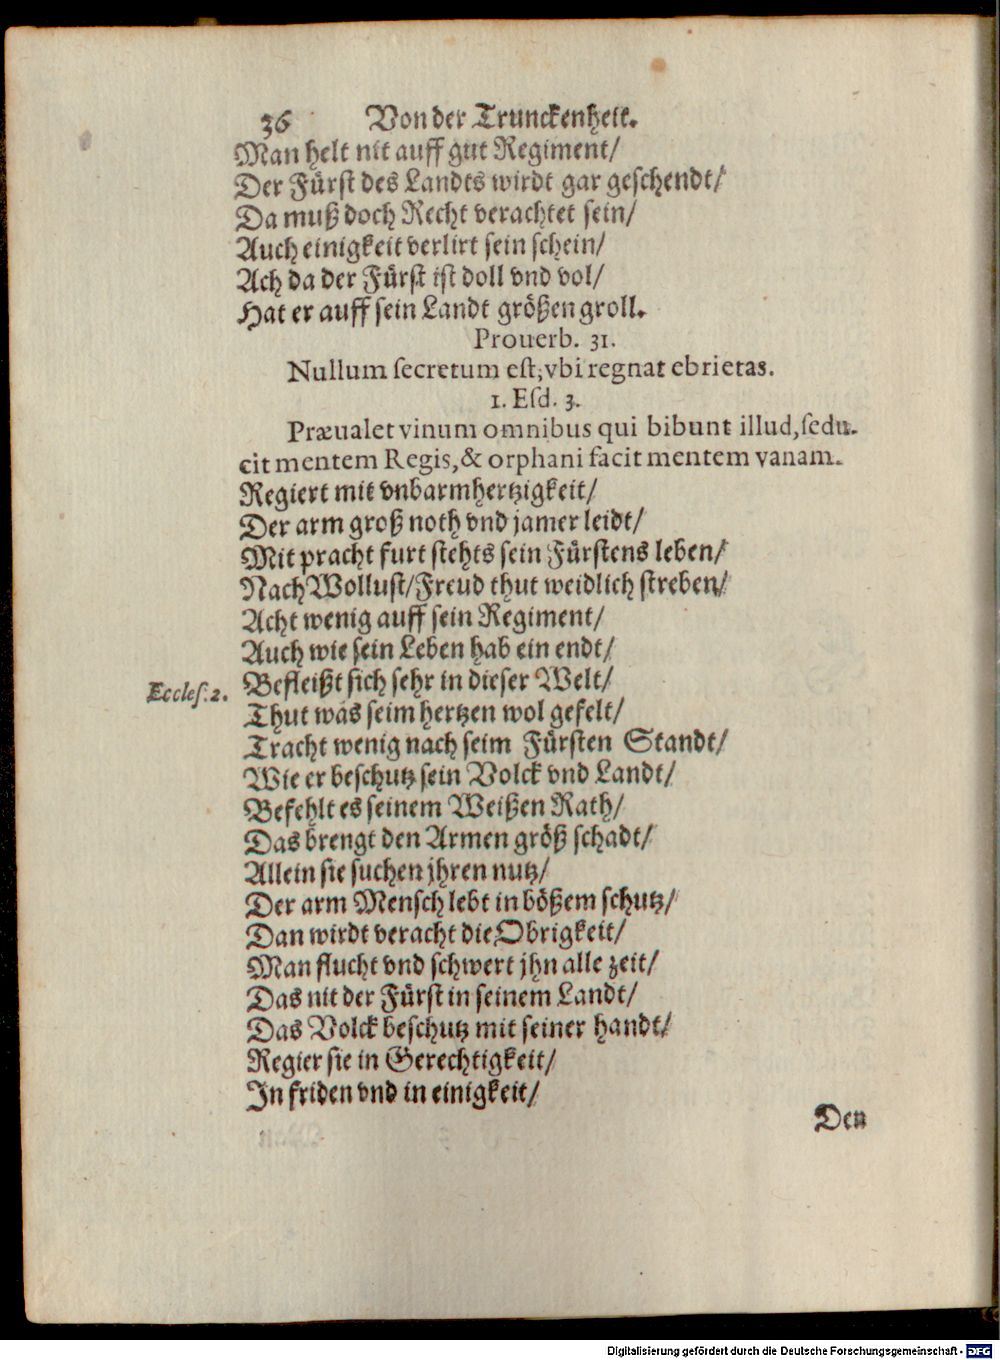 36 Von der Trunckenheit.
Man helt nit auff gut Regiment/
Der Fürst des Landts wirdt gar geschendt/
Da muß doch Recht verachtet sein/
Auch einigkeit verlirt sein schein/
Ach da der Fürst ist doll vnd vol/
Hat er auff sein Landt größen groll.
Prouerb. 31.
Nullum secretum est, vbi regnat ebrietas.
1. Esd. 3.
Præualet vinum omnibus qui bibunt illud, sedu-
cit mentem Regis, & orphani facit mentem vanam.
Regiert mit vnbarmhertzigkeit/
Der arm groß noth vnd jamer leidt/
Mit pracht furt stehts sein Fürstens leben/
Nach Wollust/Freud thut weidlich streben/
Acht wenig auff sein Regiment/
Auch wie sein Leben hab ein endt/
Eccles. 2. Befleißt sich sehr in dieser Welt/
Thut was seim hertzen wol gefelt/
Tracht wenig nach seim Fürsten Standt/
Wie er beschutz sein Volck vnd Landt/
Befehlt es seinem Weißen Rath/
Das brengt den Armen größ schadt/
Allein sie suchen jhren nutz/
Der arm Mensch lebt in bößem schutz/
Dan wirdt veracht die Obrigkeit/
Man flucht vnd schwert jhn alle zeit/
Das nit der Fürst in seinem Landt/
Das Volck beschutz mit seiner handt/
Regier sie in Gerechtigkeit/
In friden vnd in einigkeit/
Den
Digitalisierung gefördert durch die Deutsche Forschungsgemeinschaft - DFG